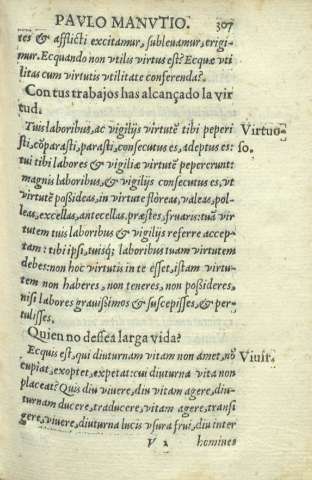 PAVLO MANVTIO. 307
res & afflicti excitamur, subleuamur, erigi-
mur. Ecquando non vtilis virtus est? Ecquæ vti
litas cum virtutis vtilitate conferenda?
Con tus trabajos has alcançado la vir
tud.
Tuis laboribus, ac vigilijs virtutē tibi peperi Virtuo-
sti, cōparasti, parasti, consecutus es, adeptus es: so.
tui tibi labores & vigiliæ virtutē pepercrunt:
magnis laboribus, & vigilijs consecutus es, vt
virtutē possideas, in virtute floreas, valeas, pol-
leas, excellas, antecellas, præstes, fruaris: tuā vir
tutem tuis laboribus & vigilijs referre accep-
tam: tibi ipsi, tuisq; laboribus tuam virtutem
debes: non hoc virtutis in te esset, istam virtu-
tem non haberes, non teneres, non possideres,
nisi labores grauissimos & suscepisses, & per-
tulisses.
Quien no dessea larga vida?
Ecquis est, qui diuturnam vitam non amet, nō Viuir.
cupiat, exoptet, expetat: cui diuturna vita non
placeat? Quis diu viuere, diu vitam agere, diu-
turnam ducere, traducere, vitam agere, transi
gere, viuere, diuturna lucis vsura frui, diu inter
V 2 homines